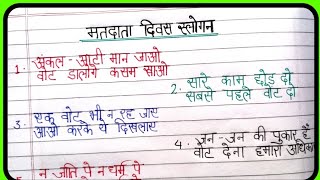 मतदाता दिवस स्लोगन
1. अंकल - आंटी मान जाओ
वोट डालोगे कसम खाओ
2. सारे काम छोड़ दो
सबसे पहले वोट दो
3. एक वोट भी न रह जाए
आओ करके ये दिखलाए
4. जन - जन की पुकार है
वोट देना हमारा अधिकार
न जाति पे न धर्म पे